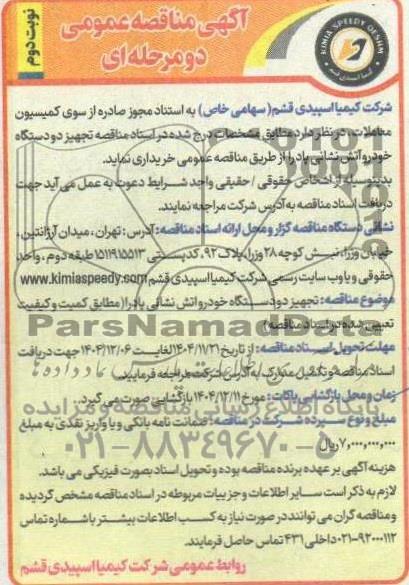 نوبت دوم
آگهی مناقصه عمومی
دو مرحله ای
KIMIA SPEEDY QESHM
کیمیا اسپیدی قشم
شرکت کیمیا اسپیدی قشم (سهامی خاص) به استناد مجوز صادره از سوی کمیسیون
معاملات، در نظر دارد مطابق مشخصات درج شده در اسناد مناقصه تجهیز دو دستگاه
خودرو آتش نشانی پادرا از طریق مناقصه عمومی خریداری نماید.
بدینوسیله از اشخاص حقوقی / حقیقی واجد شرایط دعوت به عمل می آید جهت
دریافت اسناد مناقصه به آدرس شرکت مراجعه نمایند.
نشانی دستگاه مناقصه گزار و محل ارائه اسناد مناقصه: آدرس: تهران، میدان آرژانتین،
خیابان وزرا، نبش کوچه ۲۸ وزرا، پلاک ۹۲، کدپستی ۱۵۱۱۹۱۵۵۱۳ طبقه دوم، واحد
حقوقی و یا وب سایت رسمی شرکت کیمیا اسپیدی قشم www.kimiaspeedy.com
موضوع مناقصه: تجهیز دو دستگاه خودرو آتش نشانی پادرا (مطابق کمیت و کیفیت
تعیین شده در اسناد مناقصه)
ParsNamadData
مهلت تحویل اسناد مناقصه: از تاریخ ۱۴۰۴/۱۱/۲۱ لغایت ۱۴۰۴/۱۲/۰۶ جهت دریافت
اسناد مناقصه و تکمیل مدارک به آدرس شرکت مراجعه فرمایید.
زمان و محل بازگشایی پاکات: مورخ ۱۴۰۴/۱۲/۱۱ بازگشایی صورت می گیرد.
پایگاه اطلاع رسانی مناقصه و مزایده
مبلغ و نوع سپرده شرکت در مناقصه: ضمانت نامه بانکی و یا واریز نقدی به مبلغ
۷,۰۰۰,۰۰۰,۰۰۰ ریال
۰۲۱-۸۸۳۴۹۶۷۰-۵
هزینه آگهی بر عهده برنده مناقصه بوده و تحویل اسناد بصورت فیزیکی می باشد.
لازم به ذکر است سایر اطلاعات و جزییات مربوطه در اسناد مناقصه مشخص گردیده
و مناقصه گران می توانند در صورت نیاز به کسب اطلاعات بیشتر با شماره تماس
۰۲۱-۹۲۰۰۰۱۱۲ داخلی ۴۳۱ تماس حاصل فرمایند.
روابط عمومی شرکت کیمیا اسپیدی قشم